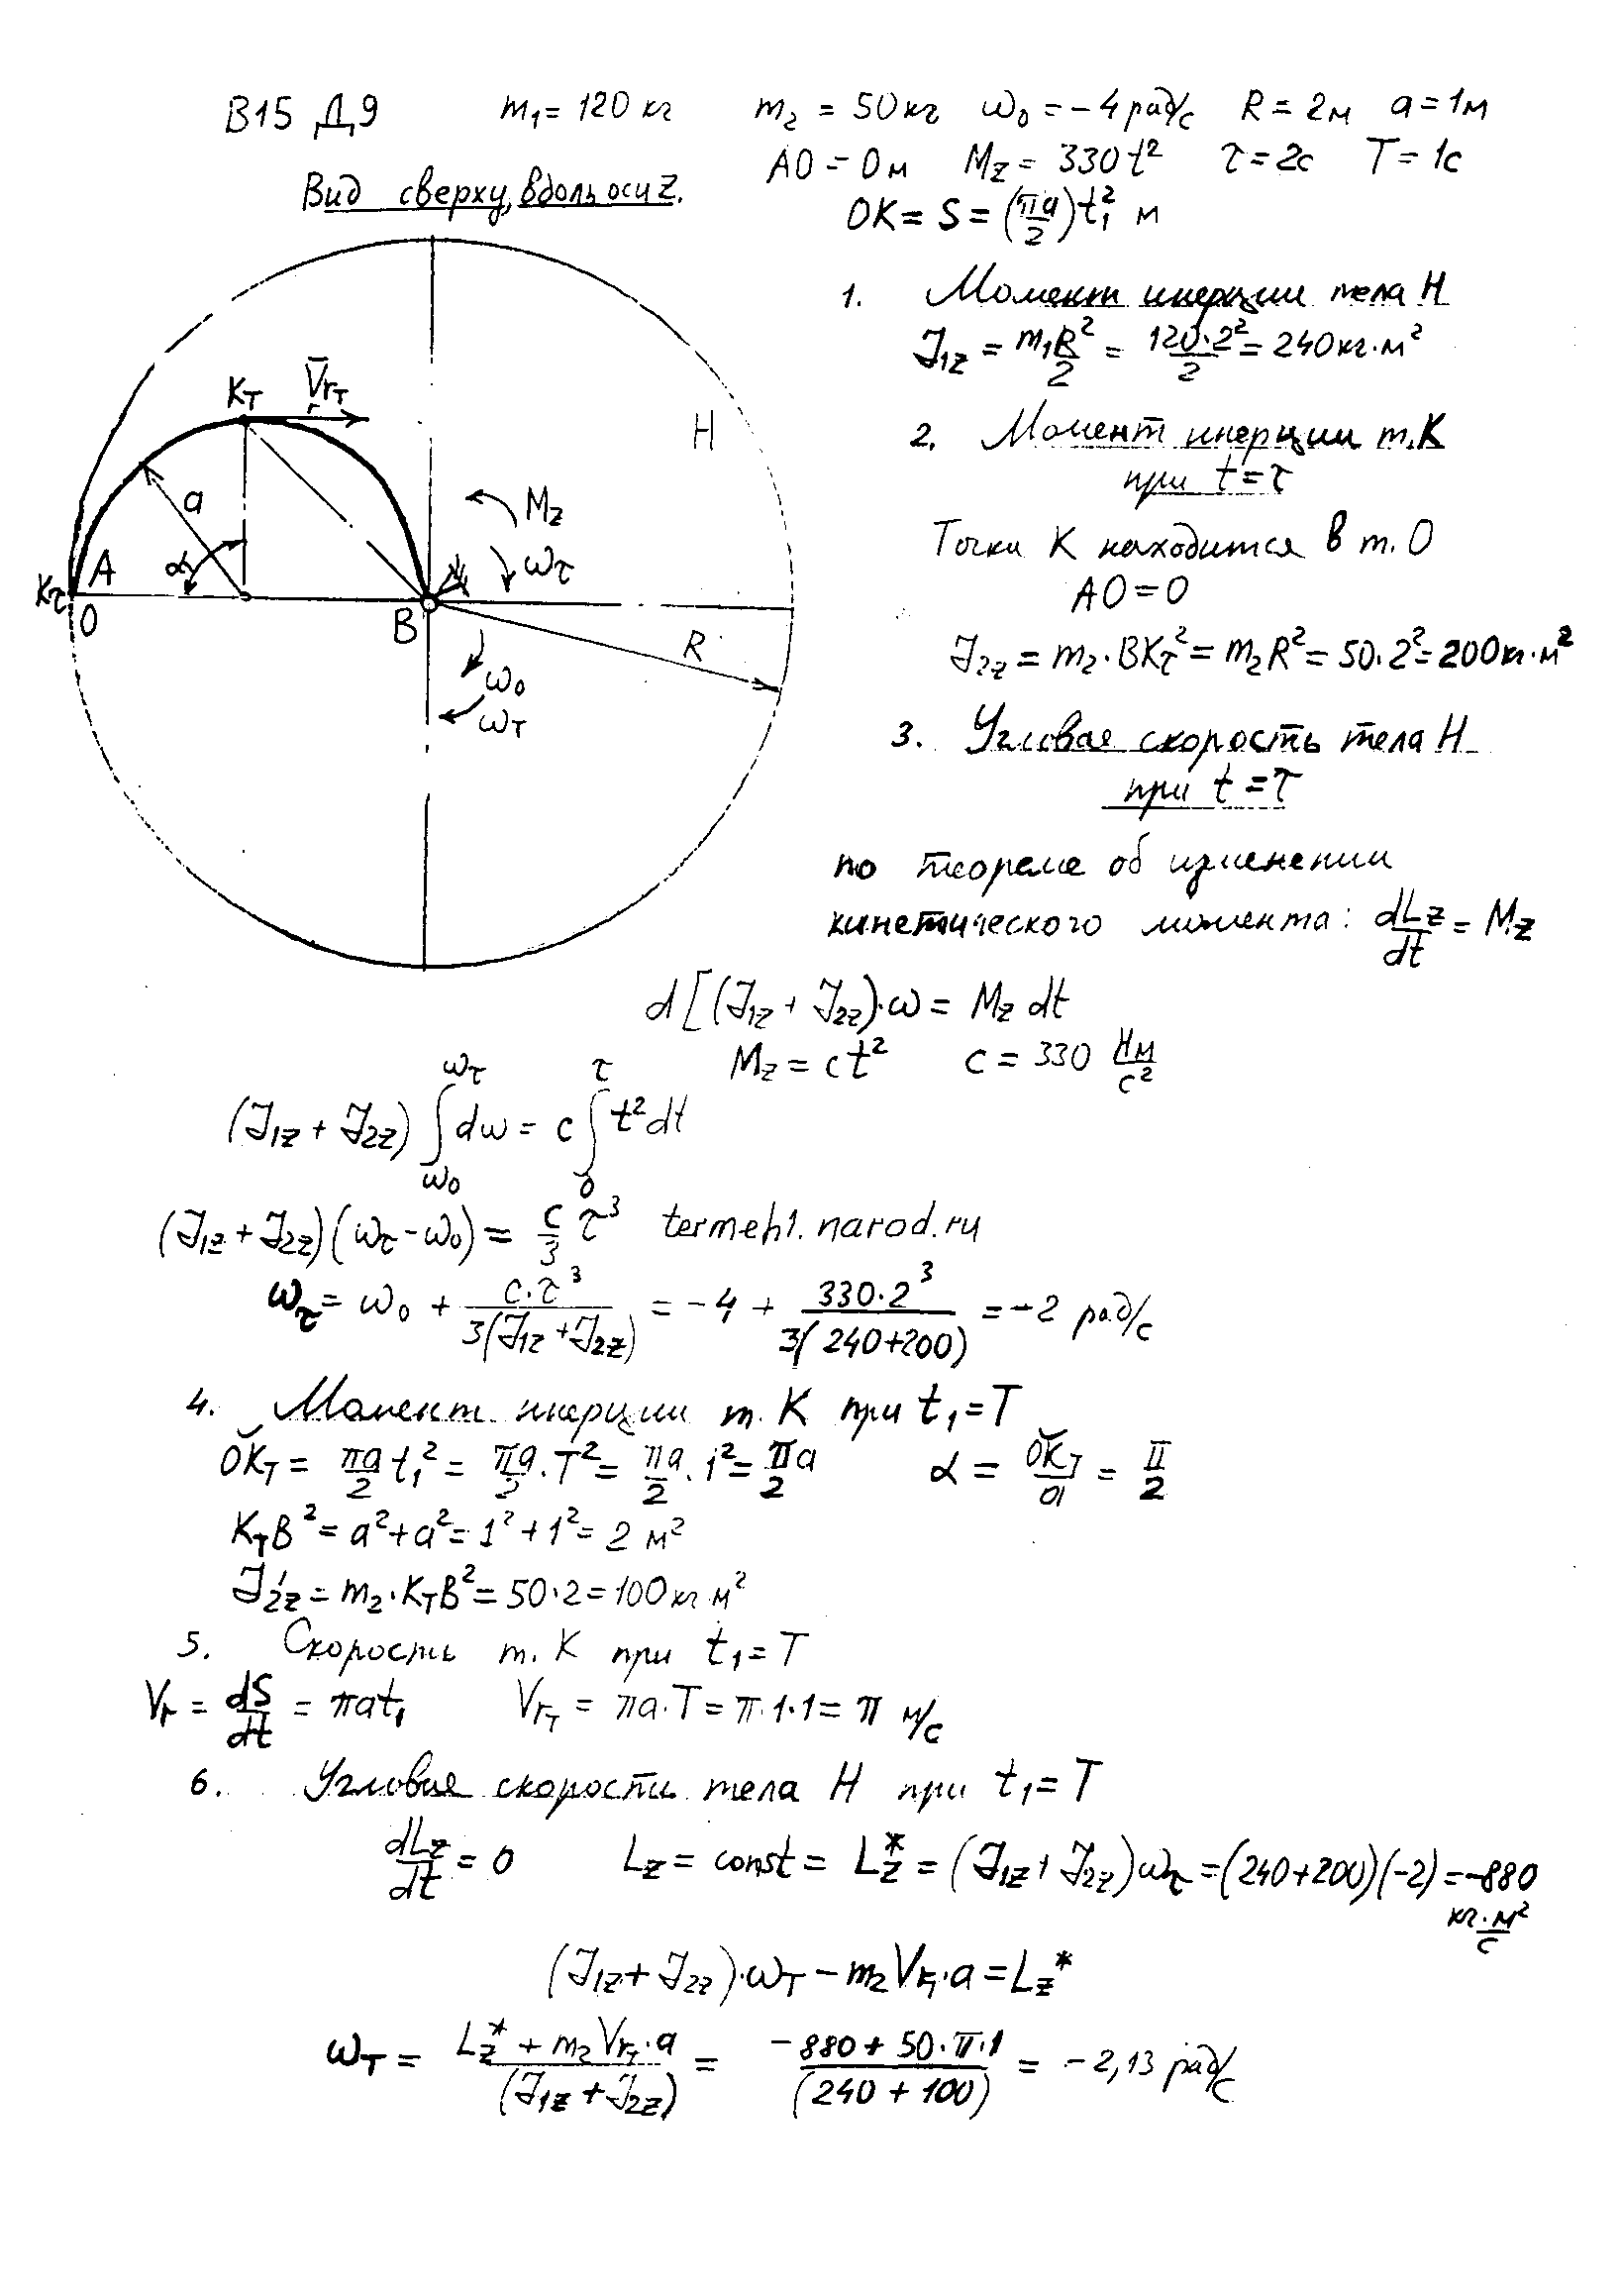 В15 Д9 m₁ = 120 кг m₂ = 50 кг ω₀ = −4 рад/с R = 2м a = 1м
АО = 0м M_z = 330 t² τ = 2с T = 1с
Вид сверху, вдоль оси z.
OK = S = (πa/2) t₁² м
1. Момент инерции тела Н
J₁z = m₁R²/2 = 120·2²/2 = 240 кг·м²
K_T V̄r_T
H
2. Момент инерции т.К
при t = τ
a
M_z
Точка К находится в т. О
α
ω_τ
АО = 0
K_τ A
O B
R
J₂z = m₂·BK_τ² = m₂R² = 50·2² = 200 кг·м²
ω₀
ω_T
3. Угловая скорость тела Н
при t = τ
по теореме об изменении
кинетического момента: dLz/dt = Mz
d[(J₁z + J₂z)·ω = Mz dt
Mz = ct² c = 330 Нм/с²
(J₁z + J₂z) ∫_ω₀^ω_τ dω = c ∫_0^τ t² dt
(J₁z + J₂z)(ω_τ − ω₀) = c/3 τ³ termeh1.narod.ru
ω_τ = ω₀ + c·τ³/3(J₁z + J₂z) = −4 + 330·2³/3(240+200) = −2 рад/с
4. Момент инерции т. К при t₁ = T
OK_T = πa/2 t₁² = πa/2 · T² = πa/2 · 1² = π/2 a α = OK_T/a = π/2
K_TB² = a² + a² = 1² + 1² = 2 м²
J₂z' = m₂·K_TB² = 50·2 = 100 кг м²
5. Скорость т. К при t₁ = T
Vr = dS/dt = πat₁ Vr_T = πa·T = π·1·1 = π м/с
6. Угловая скорости тела Н при t₁ = T
dLz/dt = 0 Lz = const = Lz* = (J₁z + J₂z)ω_τ = (240+200)(−2) = −880
кг·м²/с
(J₁z + J₂z)·ω_T − m₂Vr_T·a = Lz*
ω_T = Lz* + m₂Vr_T·a/(J₁z + J₂z) = −880 + 50·π·1/(240 + 100) = −2,13 рад/с